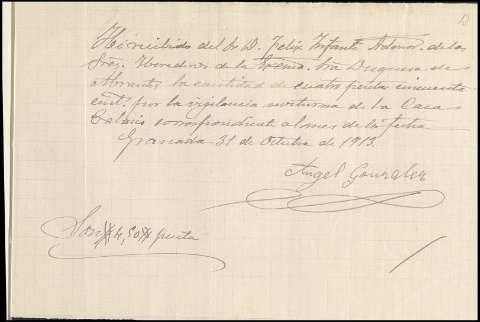 He recibido del Sr. D. Felix Infante Admor. de los
Sres. Herederos de la Excma. Sra Duquesa de
Abrantes la cantidad de cuatro pesetas cincuenta
cent. por la vigilancia nocturna de la Casa
Palacio correspondiente al mes de la fecha
Granada 31 de Octubre de 1913.
Angel Gonzalez
Son 4,50 pesetas